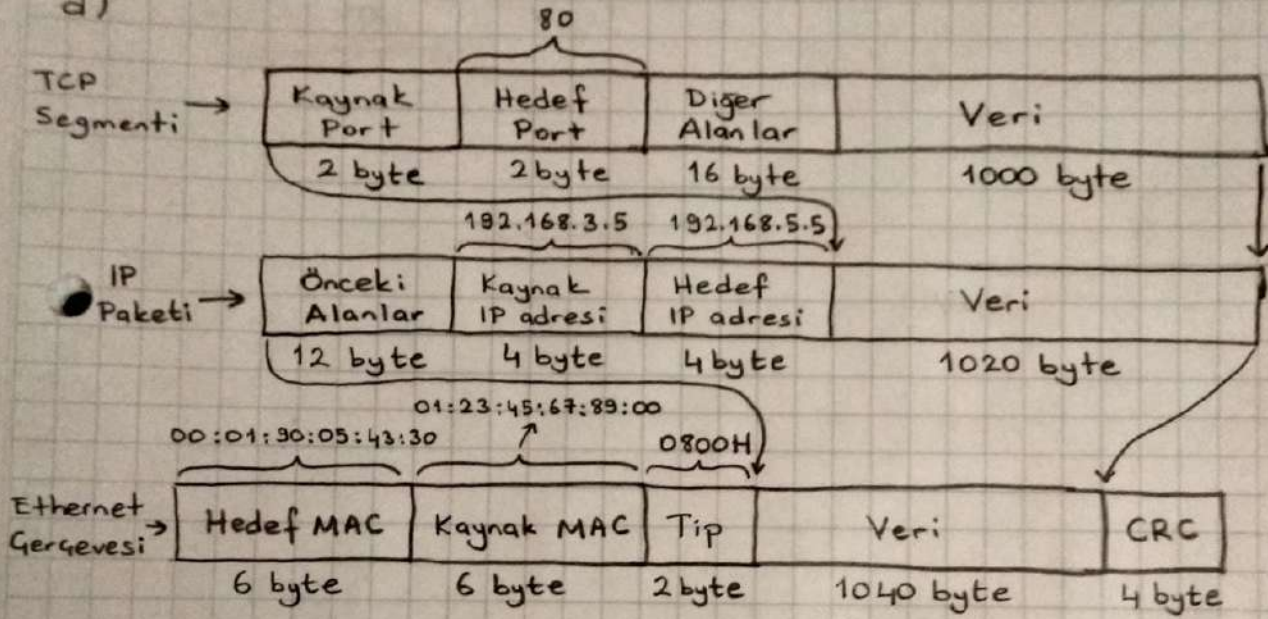 d)
80
TCP
Segmenti →
Kaynak
Port
Hedef
Port
Diğer
Alanlar
Veri
2 byte
2 byte
16 byte
1000 byte
192.168.3.5
192.168.5.5
IP
Paketi →
Önceki
Alanlar
Kaynak
IP adresi
Hedef
IP adresi
Veri
12 byte
4 byte
4 byte
1020 byte
01:23:45:67:89:00
00:01:90:05:43:30
0800H
Ethernet
Çerçevesi →
Hedef MAC
Kaynak MAC
Tip
Veri
CRC
6 byte
6 byte
2 byte
1040 byte
4 byte